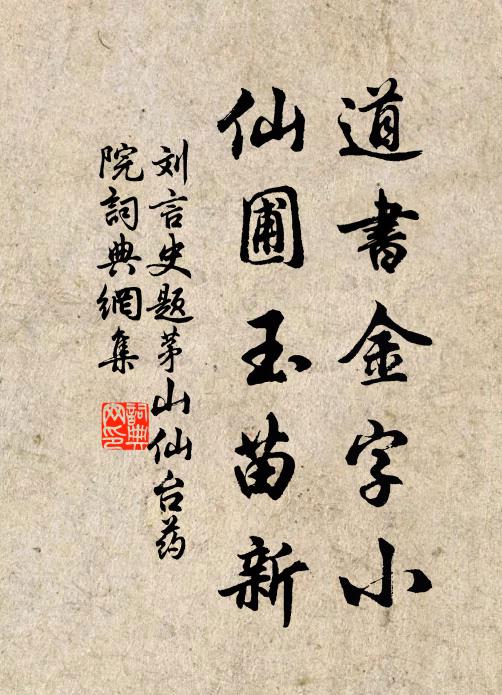 道書金字小
仙圃玉苗新
刘言史题茅山仙台药
院詞典網集
詞典網印